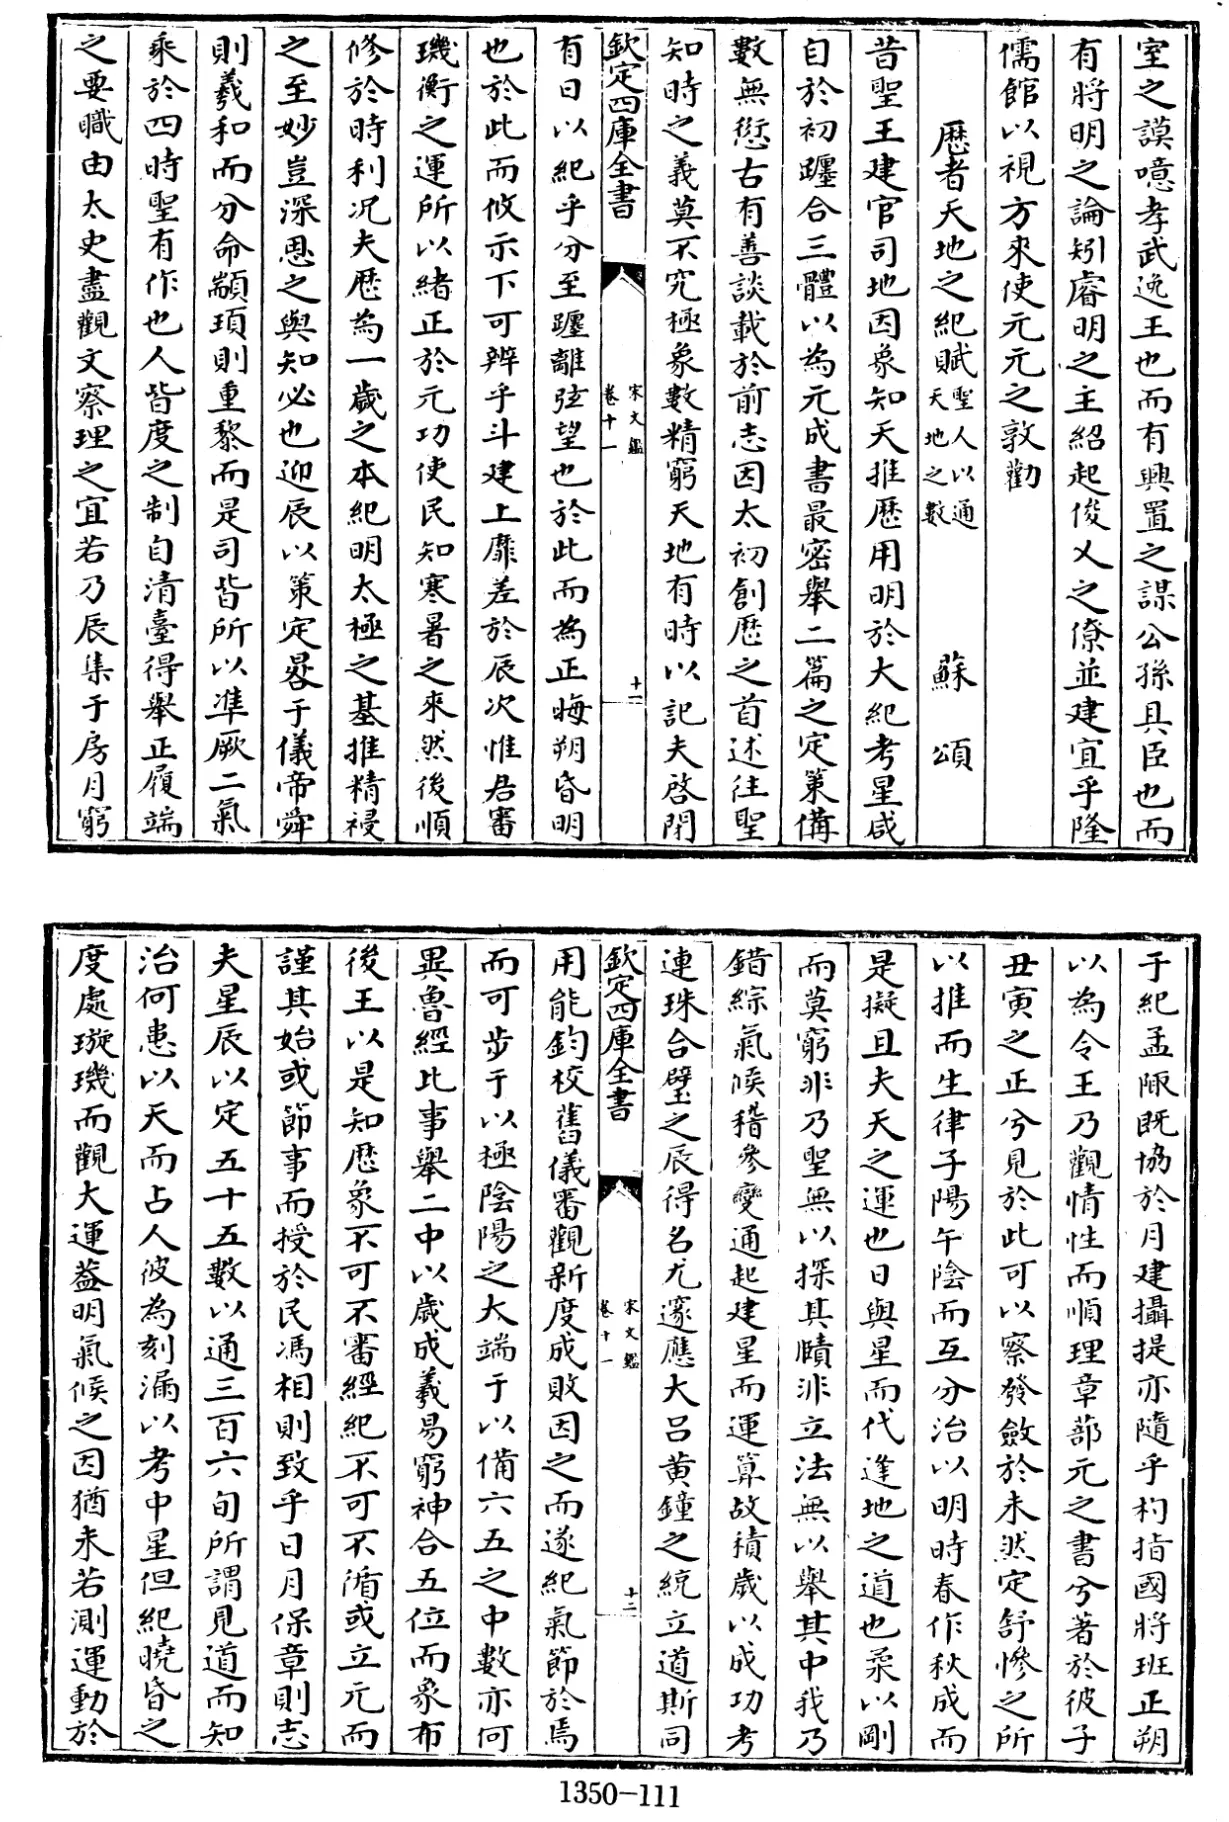 室之謨噫孝武逸王也而有興置之謀公孫具臣也而
有將明之論矧睿明之主紹起俊乂之僚並建宜乎隆
儒館以視方來使元元之敦勸
歴者天地之紀賦聖人以通天地之數 蘇頌
昔聖王建官司地因象知天推歴用明於大紀考星咸
自於初躔合三體以為元成書最密舉二篇之定策備
數無愆古有善談載於前志因太初創歴之首述往聖
知時之義莫不究極象數精窮天地有時以記夫啓閉
欽定四庫全書 宋文鑑 卷十一 十二
有日以紀乎分至躔離弦望也於此而為正晦朔昏明
也於此而攸示下可辨乎斗建上靡差於辰次惟君審
璣衡之運所以緒正於元功使民知寒暑之來然後順
修於時利况夫歴為一歲之本紀明太極之基推精祲
之至妙豈深思之與知必也迎辰以策定晷于儀帝舜
則羲和而分命顓頊則重黎而是司皆所以凖厥二氣
乘於四時聖有作也人皆度之制自清臺得舉正履端
之要職由太史盡觀文察理之宜若乃辰集于房月窮
于紀孟陬既協於月建攝提亦隨乎杓指國將班正朔
以為令王乃觀情性而順理章蔀元之書兮著於彼子
丑寅之正兮見於此可以察發斂於未然定舒慘之所
以推而生律子陽午陰而互分治以明時春作秋成而
是擬且夫天之運也日與星而代逢地之道也柔以剛
而莫窮非乃聖無以探其賾非立法無以舉其中我乃
錯綜氣候稽參變通起建星而運算故積歲以成功考
連珠合璧之辰得名尤邃應大呂黄鐘之統立道斯同
欽定四庫全書 宋文鑑 卷十一 十二
用能鈞校舊儀審觀新度成敗因之而遂紀氣節於焉
而可步于以極陰陽之大端于以備六五之中數亦何
異魯經比事舉二中以歲成羲易窮神合五位而象布
後王以是知歴象不可不審經紀不可不循或立元而
謹其始或節事而授於民馮相則致乎日月保章則志
夫星辰以定五十五數以通三百六旬所謂見道而知
治何患以天而占人彼為刻漏以考中星但紀曉昏之
度處璇璣而觀大運葢明氣候之因猶未若測運動於
1350-111